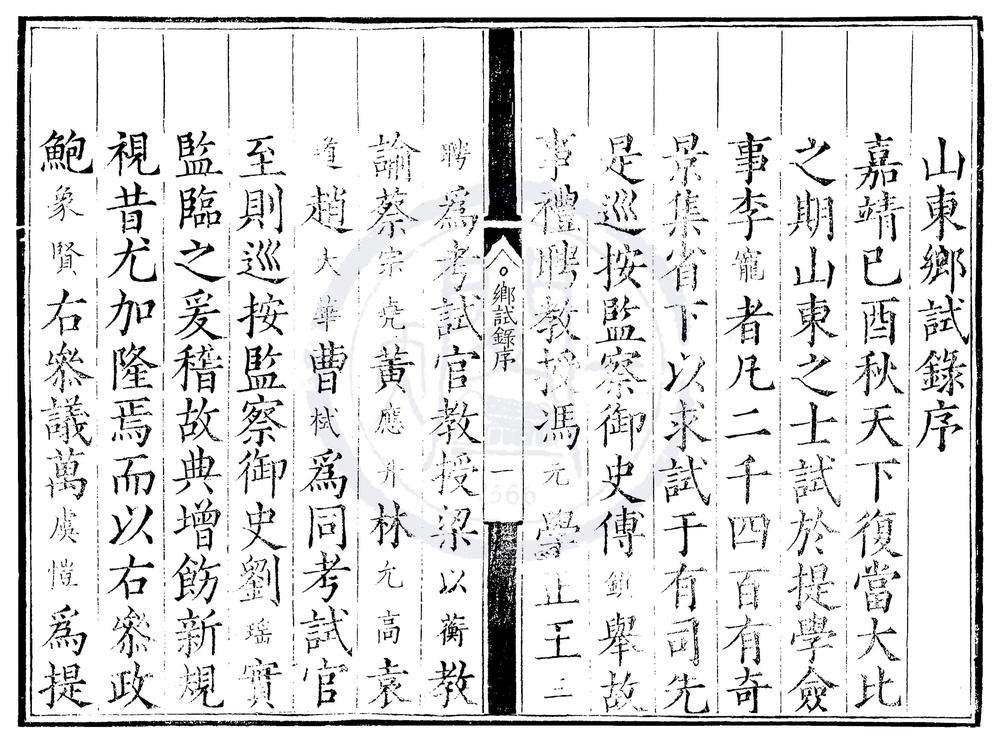 山東鄉試錄序
嘉靖已酉秋天下復當大比
之期山東之士試於提學僉
事李寵者凡二千四百有奇
景集省下以求試于有司先
是巡按監察御史傅鎮舉故
事禮聘教授馮元學正王二
鄉試錄序
一
聘為考試官教授梁以蘅教
諭蔡宗堯黃應升林允高袁
道趙大華曹栻為同考試官
至則巡按監察御史劉瑶實
監臨之爰稽故典增飭新規
視昔尤加隆焉而以右叅政
鮑象賢右叅議萬虞愷為提